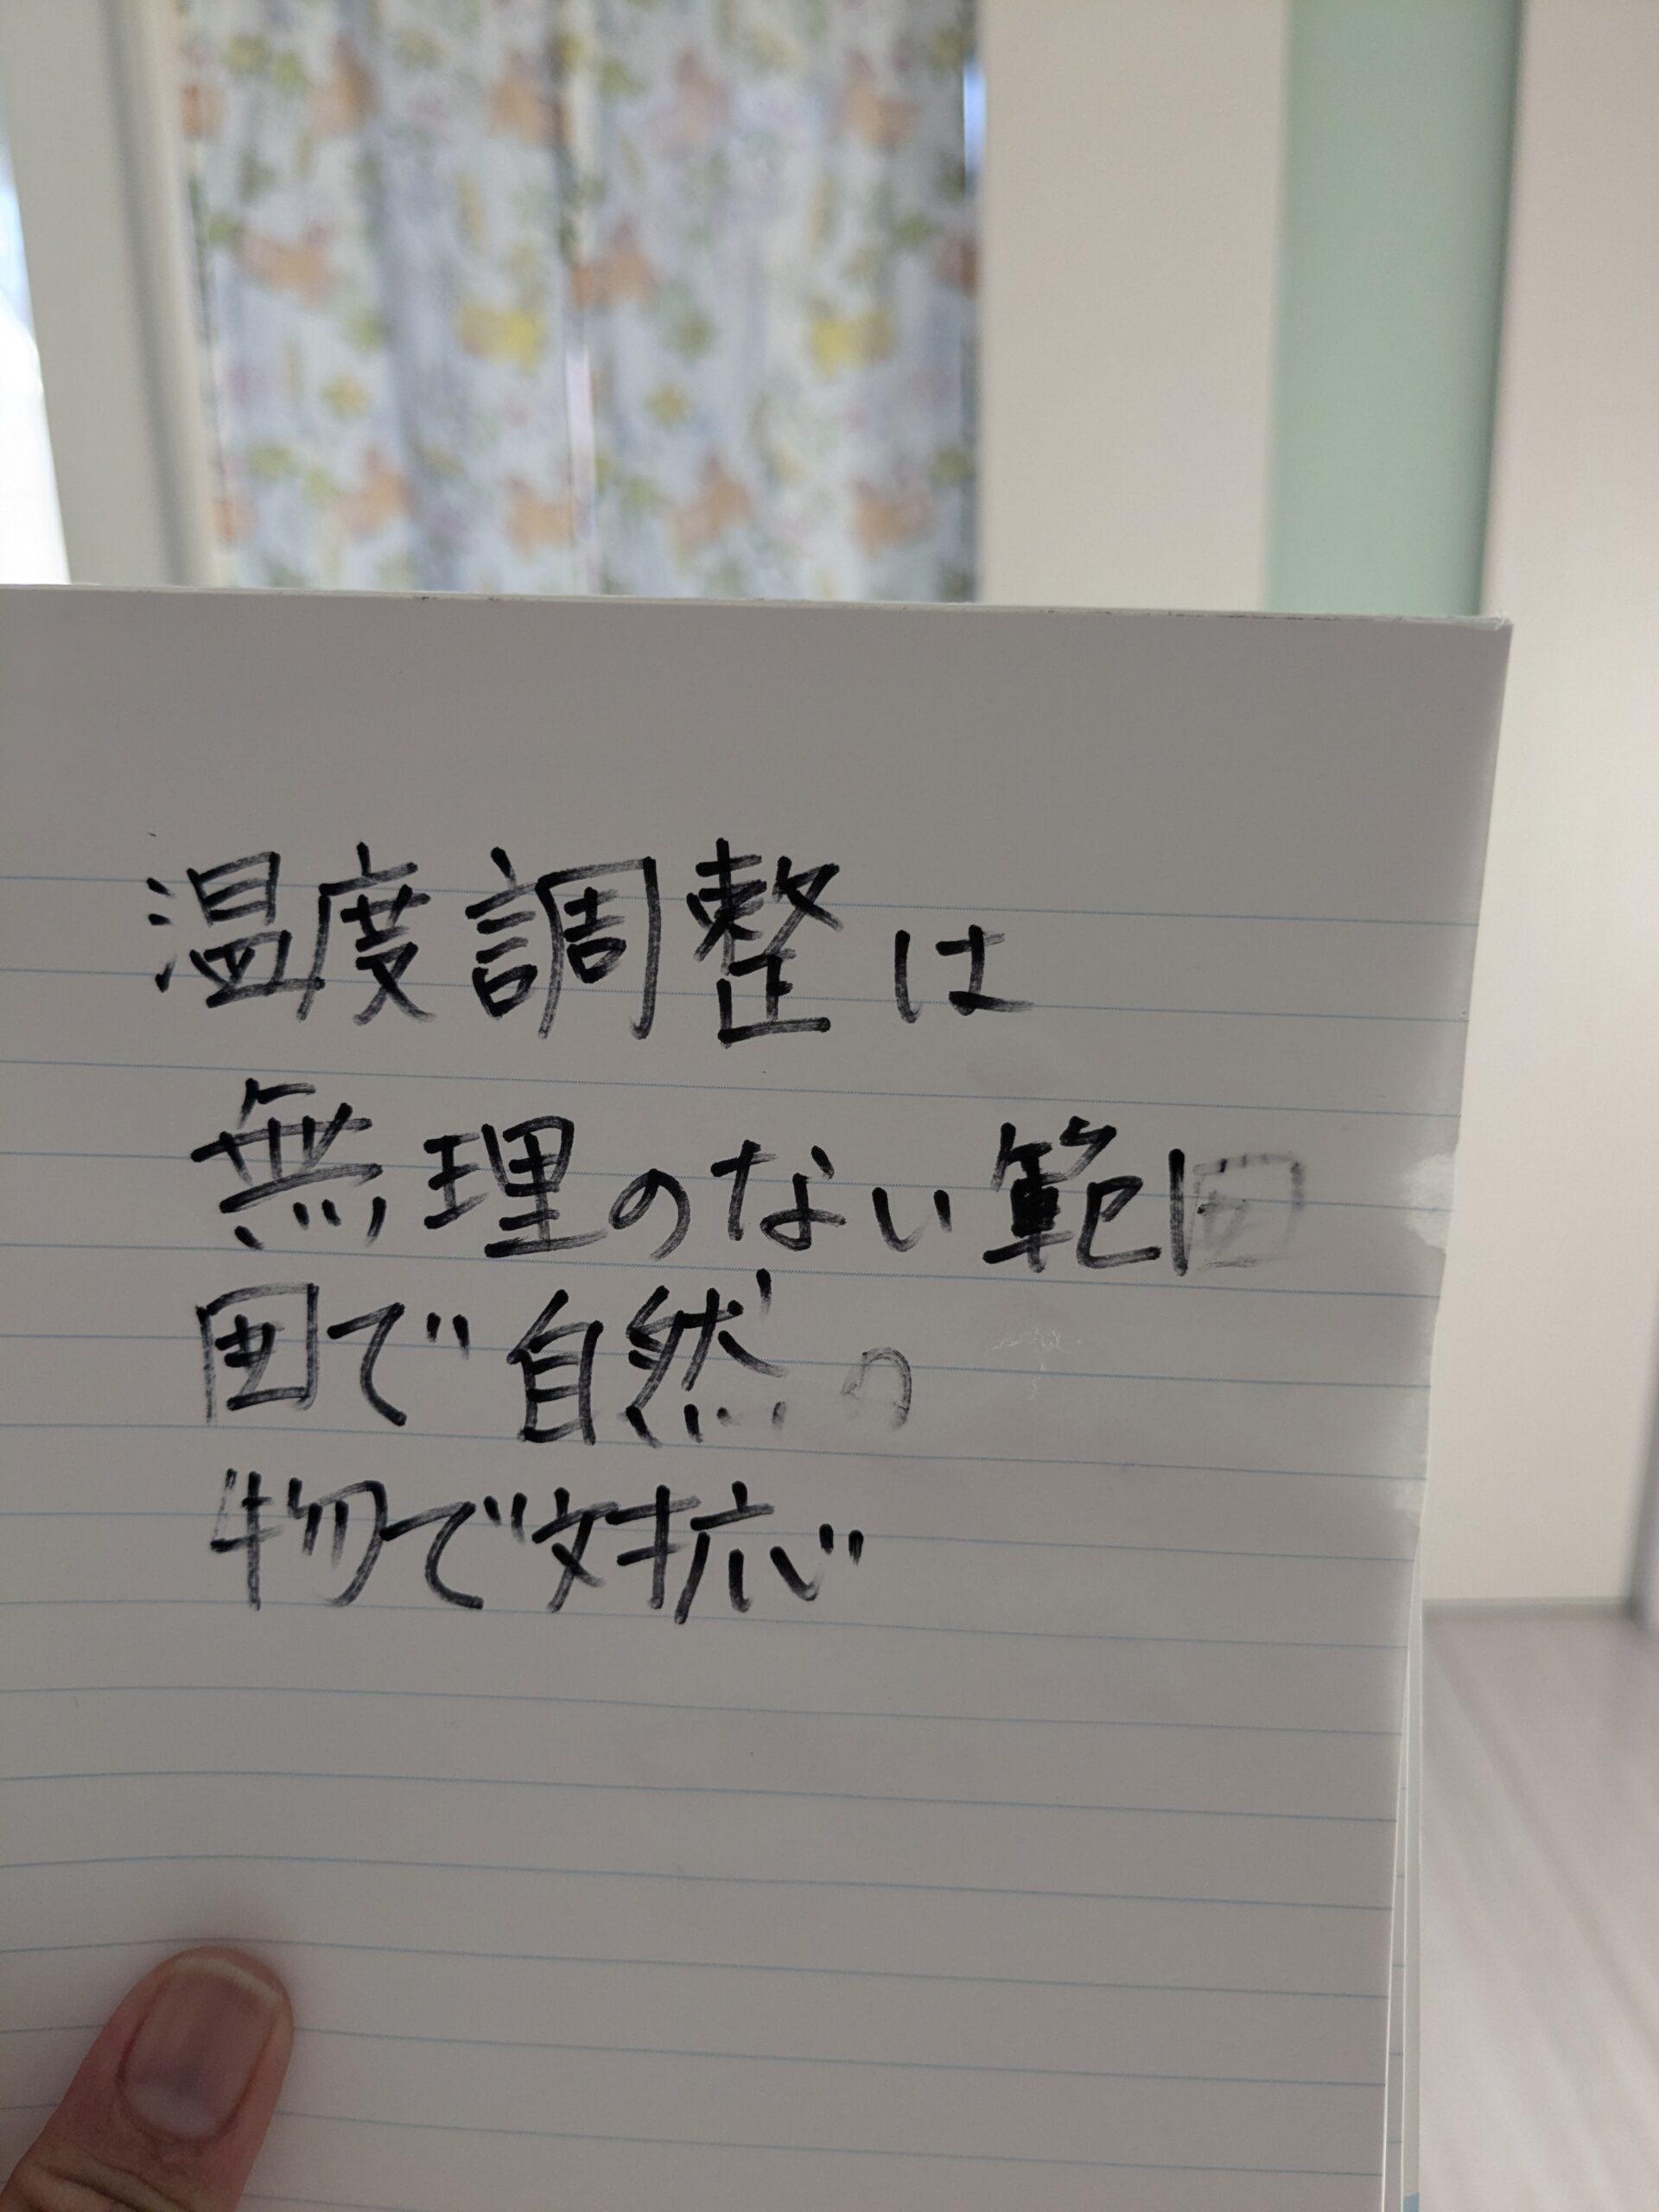 温度調整は
無理のない範囲
囲で自然の
物で対応